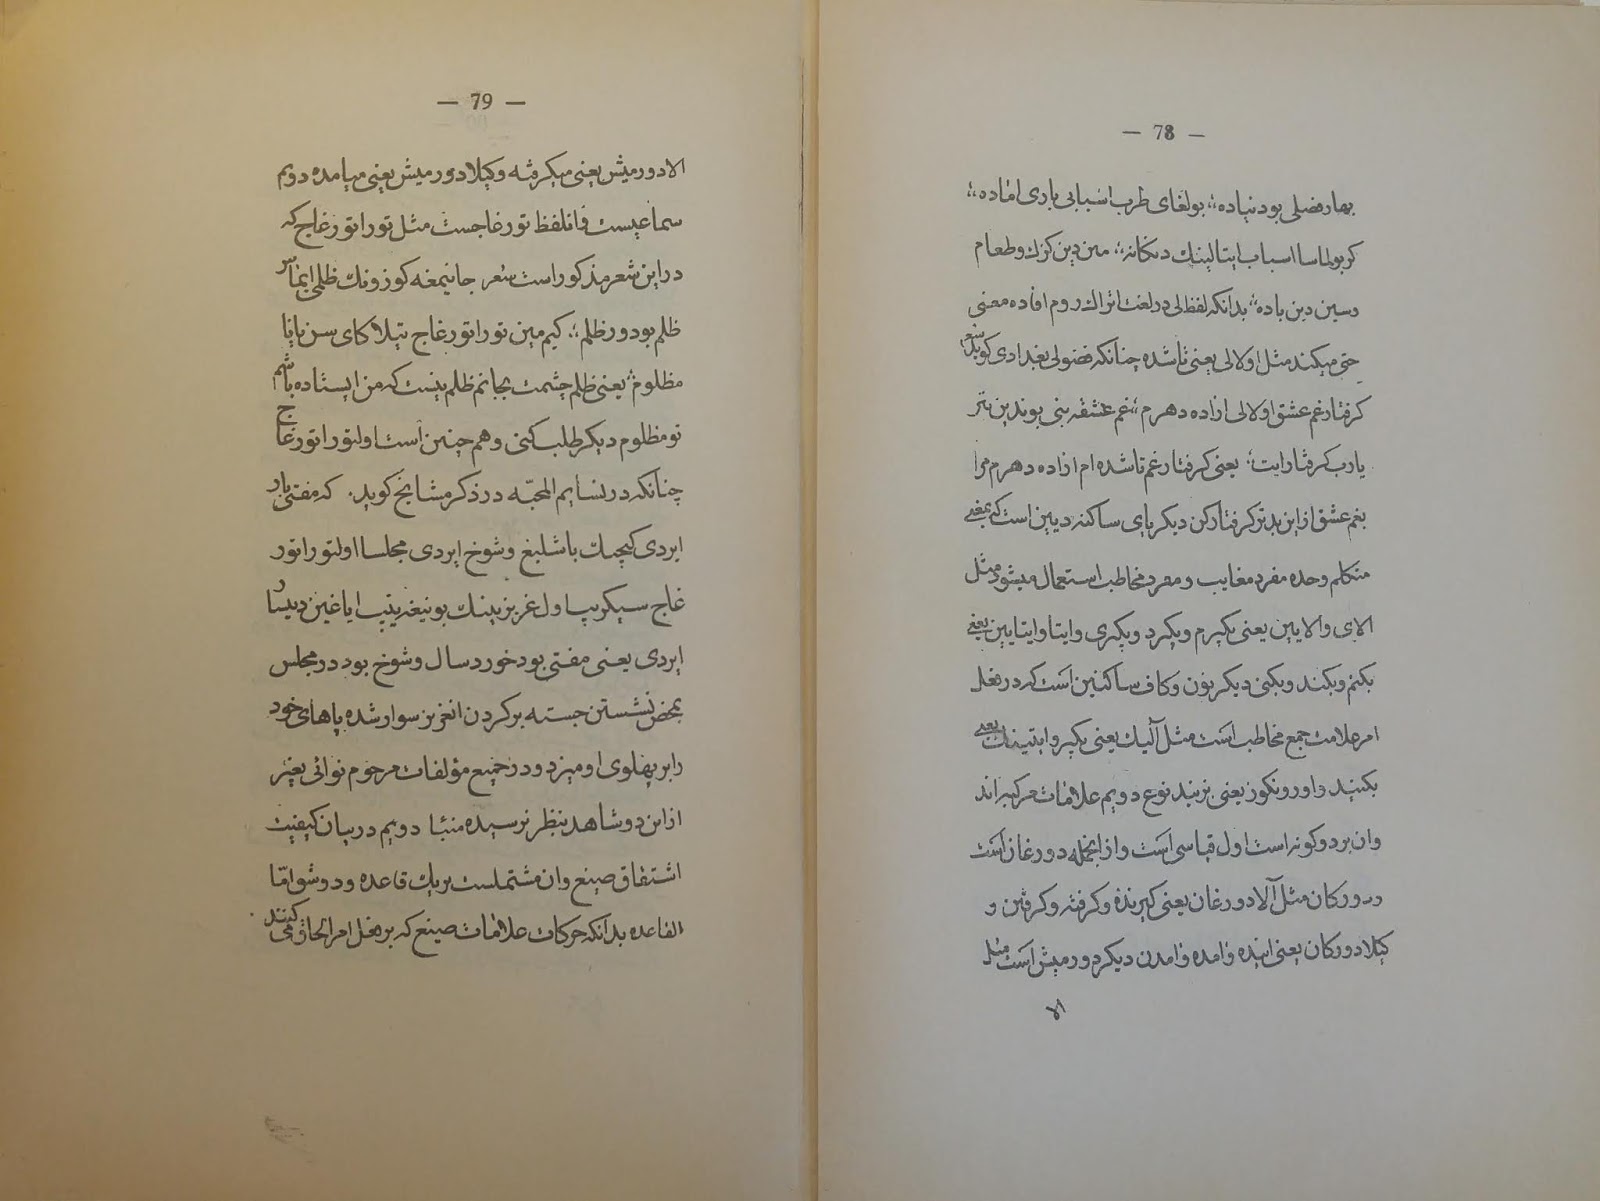 — 78 —
بهار فصلی بود نیاده بولغای طرب اسبابی باری اماده
کر بولماسا اسباب ایتالینک دنکانه مین دین کزک و طعام
سین دین باده بدانکه لفظ لی در لغت اتراك روم افاده معنی
حتی میکند مثل اولالی یعنی تا شده چنانکه فضولی بغدادی کوید شعر
کرفتار غم عشق اولالی ازاده دهرم غم عشقه بنی بوندین بتر
یارب کرفتار ایت یعنی کرفتار غم تا شده ام ازاده دهرم مرا
بغم عشق از این بدتر کرفتار کن دیکر یای ساکنه دیین است که بمعنی
متکلم وحده مفرد مغایب و مفرد مخاطب استعمال میشود مثل
الای والایین یعنی بکیرم وبکیرد وبکیری وایتا وایتایین یعنی
بکنم وبکند وبکنی دیکر نون وکاف ساکنین است که در فعل
امر علامت جمع مخاطب است مثل آلینك یعنی بکیرید وایتینك یعنی
بکنید واورونکوز یعنی بزنید نوع دویم علامات مرکبه اند
وان بر دو کونه است اول قیاسی است واز انجمله دورغان است
ودورکان مثل آلادورغان یعنی کیرنده وکرفته وکرفتن و
کیلادورکان یعنی اینده وامده وامدن دیکر دورمیش است مثل
الا
— 79 —
الادورمیش یعنی میکرفته وکیلادورمیش یعنی میامده دویم
سماعیست وانلفظ تورغاجست مثل توراتورغاج که
در این شعر مذکور است شعر جانیمغه کوزونك ظلمی ایماس
ظلم بودور ظلم کیم مین توراتورغاج تیلاکای سن یانا
مظلوم یعنی ظلم چشمت بجانم ظلم نیست که من ایستاده باشم
تو مظلوم دیکر طلب کنی وهم چنین است اولتوراتورغاج
چنانکه در نسایم المحبّه در ذکر مشایخ کوید که مفتی بار
ایردی کیچیك باشلیغ وشوخ ایردی مجلسا اولتوراتور
غاج سیکریب اول عزیزینك بوینیغه یتیب ایاغین دیبسا
ایردی یعنی مفتی بود خورد سال وشوخ بود در مجلس
بمحض نشستن جسته بر کردن انعزیز سوار شده پاهای خود
را بر پهلوی او میزد ودر جمیع مؤلفات مرحوم نوائی بغیر
از این دو شاهد بنظر نرسیده مبنا دویم در بیان کیفیت
اشتقاق صیغ وان مشتملست بر یك قاعده ودو شق امّا
القاعده بدانکه حرکات علامات صیغ که بر فعل امر الحاق می کنند